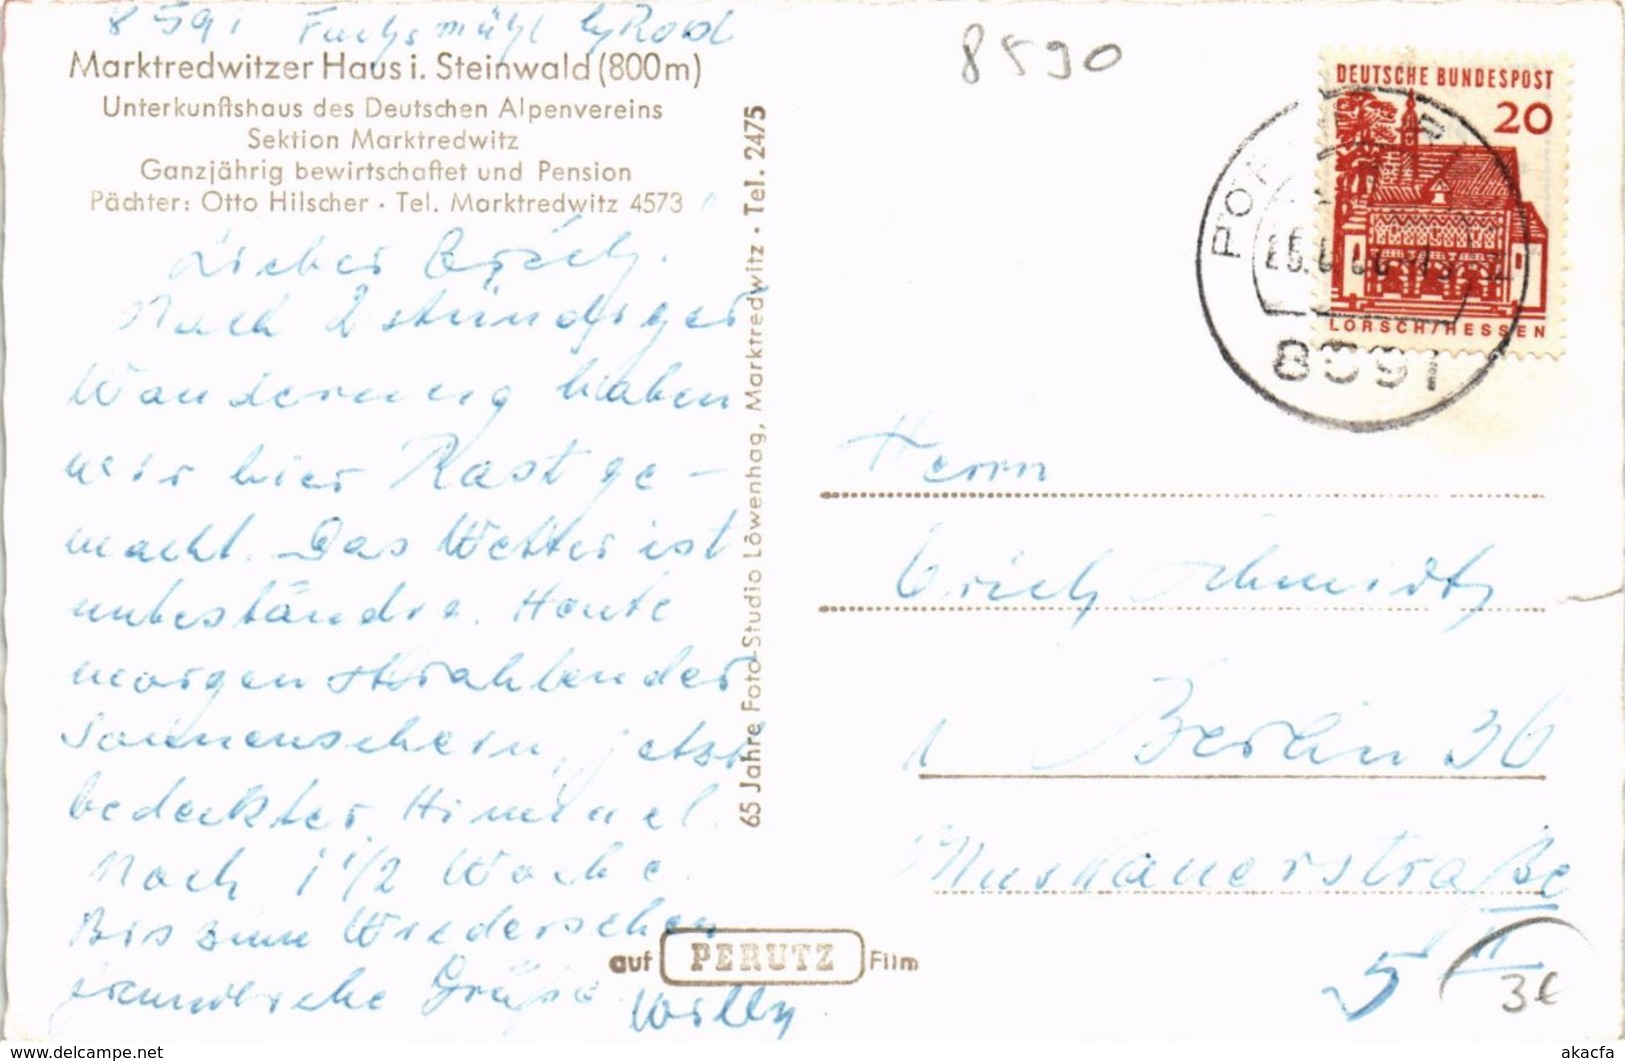 8591 Fuchsmühl
Marktredwitzer Haus i. Steinwald (800m)
Unterkunftshaus des Deutschen Alpenvereins
Sektion Marktredwitz
Ganzjährig bewirtschaftet und Pension
Pächter: Otto Hilscher · Tel. Marktredwitz 4573
Lieber Erich.
Nach 2 stündiger
Wanderung haben
wir hier Rast ge-
macht. Das Wetter ist
unbeständig. Heute
morgen strahlender
Sonnenschein, jetzt
bedeckter Himmel.
Noch 1 1/2 Woche.
Bis zum Wiedersehen
freundliche Grüße
Willy
65 Jahre Foto-Studio Löwenhag, Marktredwitz · Tel. 2475
auf PERUTZ Film
8590
DEUTSCHE BUNDESPOST
20
LORSCH/HESSEN
8591
Herrn
Erich Schmidt
1 Berlin 36
Muskauerstraße
5 II
3€
akpool.co.uk
akacfa